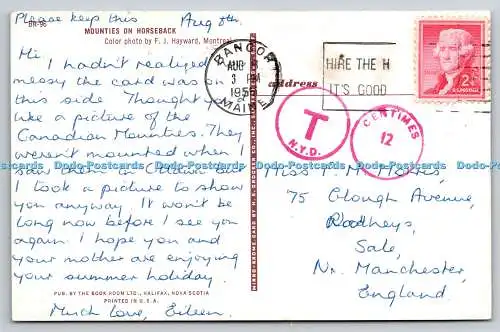 Please keep this Aug 8th.
BR-96
MOUNTIES ON HORSEBACK
Color photo by F. J. Hayward, Montreal
Hi, I hadn't realized how
messy the card was on
this side. Thought you'd
like a picture of the
Canadian Mounties. They
weren't mounted when I
saw them in Ottawa but
I took a picture to show
you anyway. It won't be
long now before I see you
again. I hope you and
your mother are enjoying
your summer holiday.
PUB. BY THE BOOK ROOM LTD., HALIFAX, NOVA SCOTIA
PRINTED IN U.S.A.
Much love, Eileen.
BANGOR
AUG
3 PM
MAINE
HIRE THE H
IT'S GOOD
2¢
address
T
N.Y.D.
CENTIMES
12
Miss M. Morris,
75 Clough Avenue,
Sale,
Nr. Manchester,
England.
Dodo-Postcards Dodo-Postcards Dodo-Postcards Dodo-Postcards